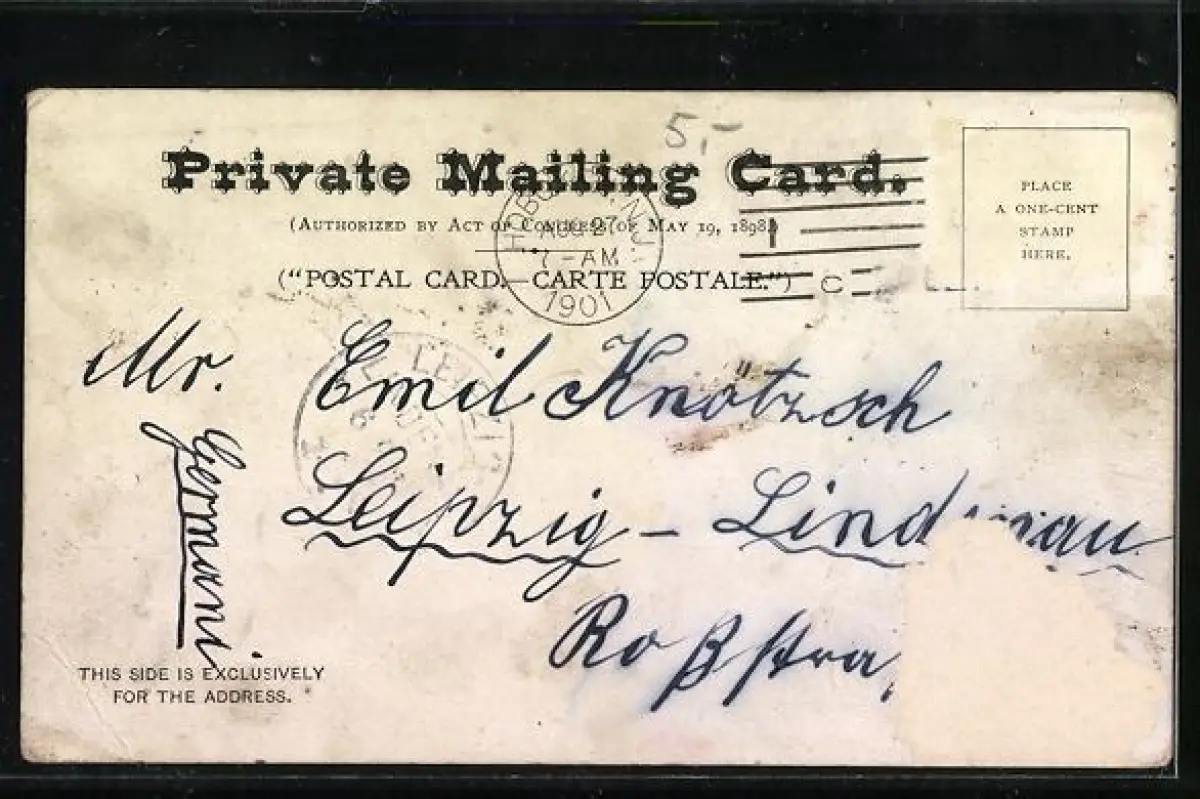 5,-
Private Mailing Card.
(AUTHORIZED BY ACT OF CONGRESS OF MAY 19, 1898.)
("POSTAL CARD.—CARTE POSTALE.")
PLACE
A ONE-CENT
STAMP
HERE.
HOBO N.J.
AUG 27
7-AM
1901
C
LEIPZI
Mr. Emil Knötzsch
Leipzig - Lind nau
Roßstra
Germani
THIS SIDE IS EXCLUSIVELY
FOR THE ADDRESS.